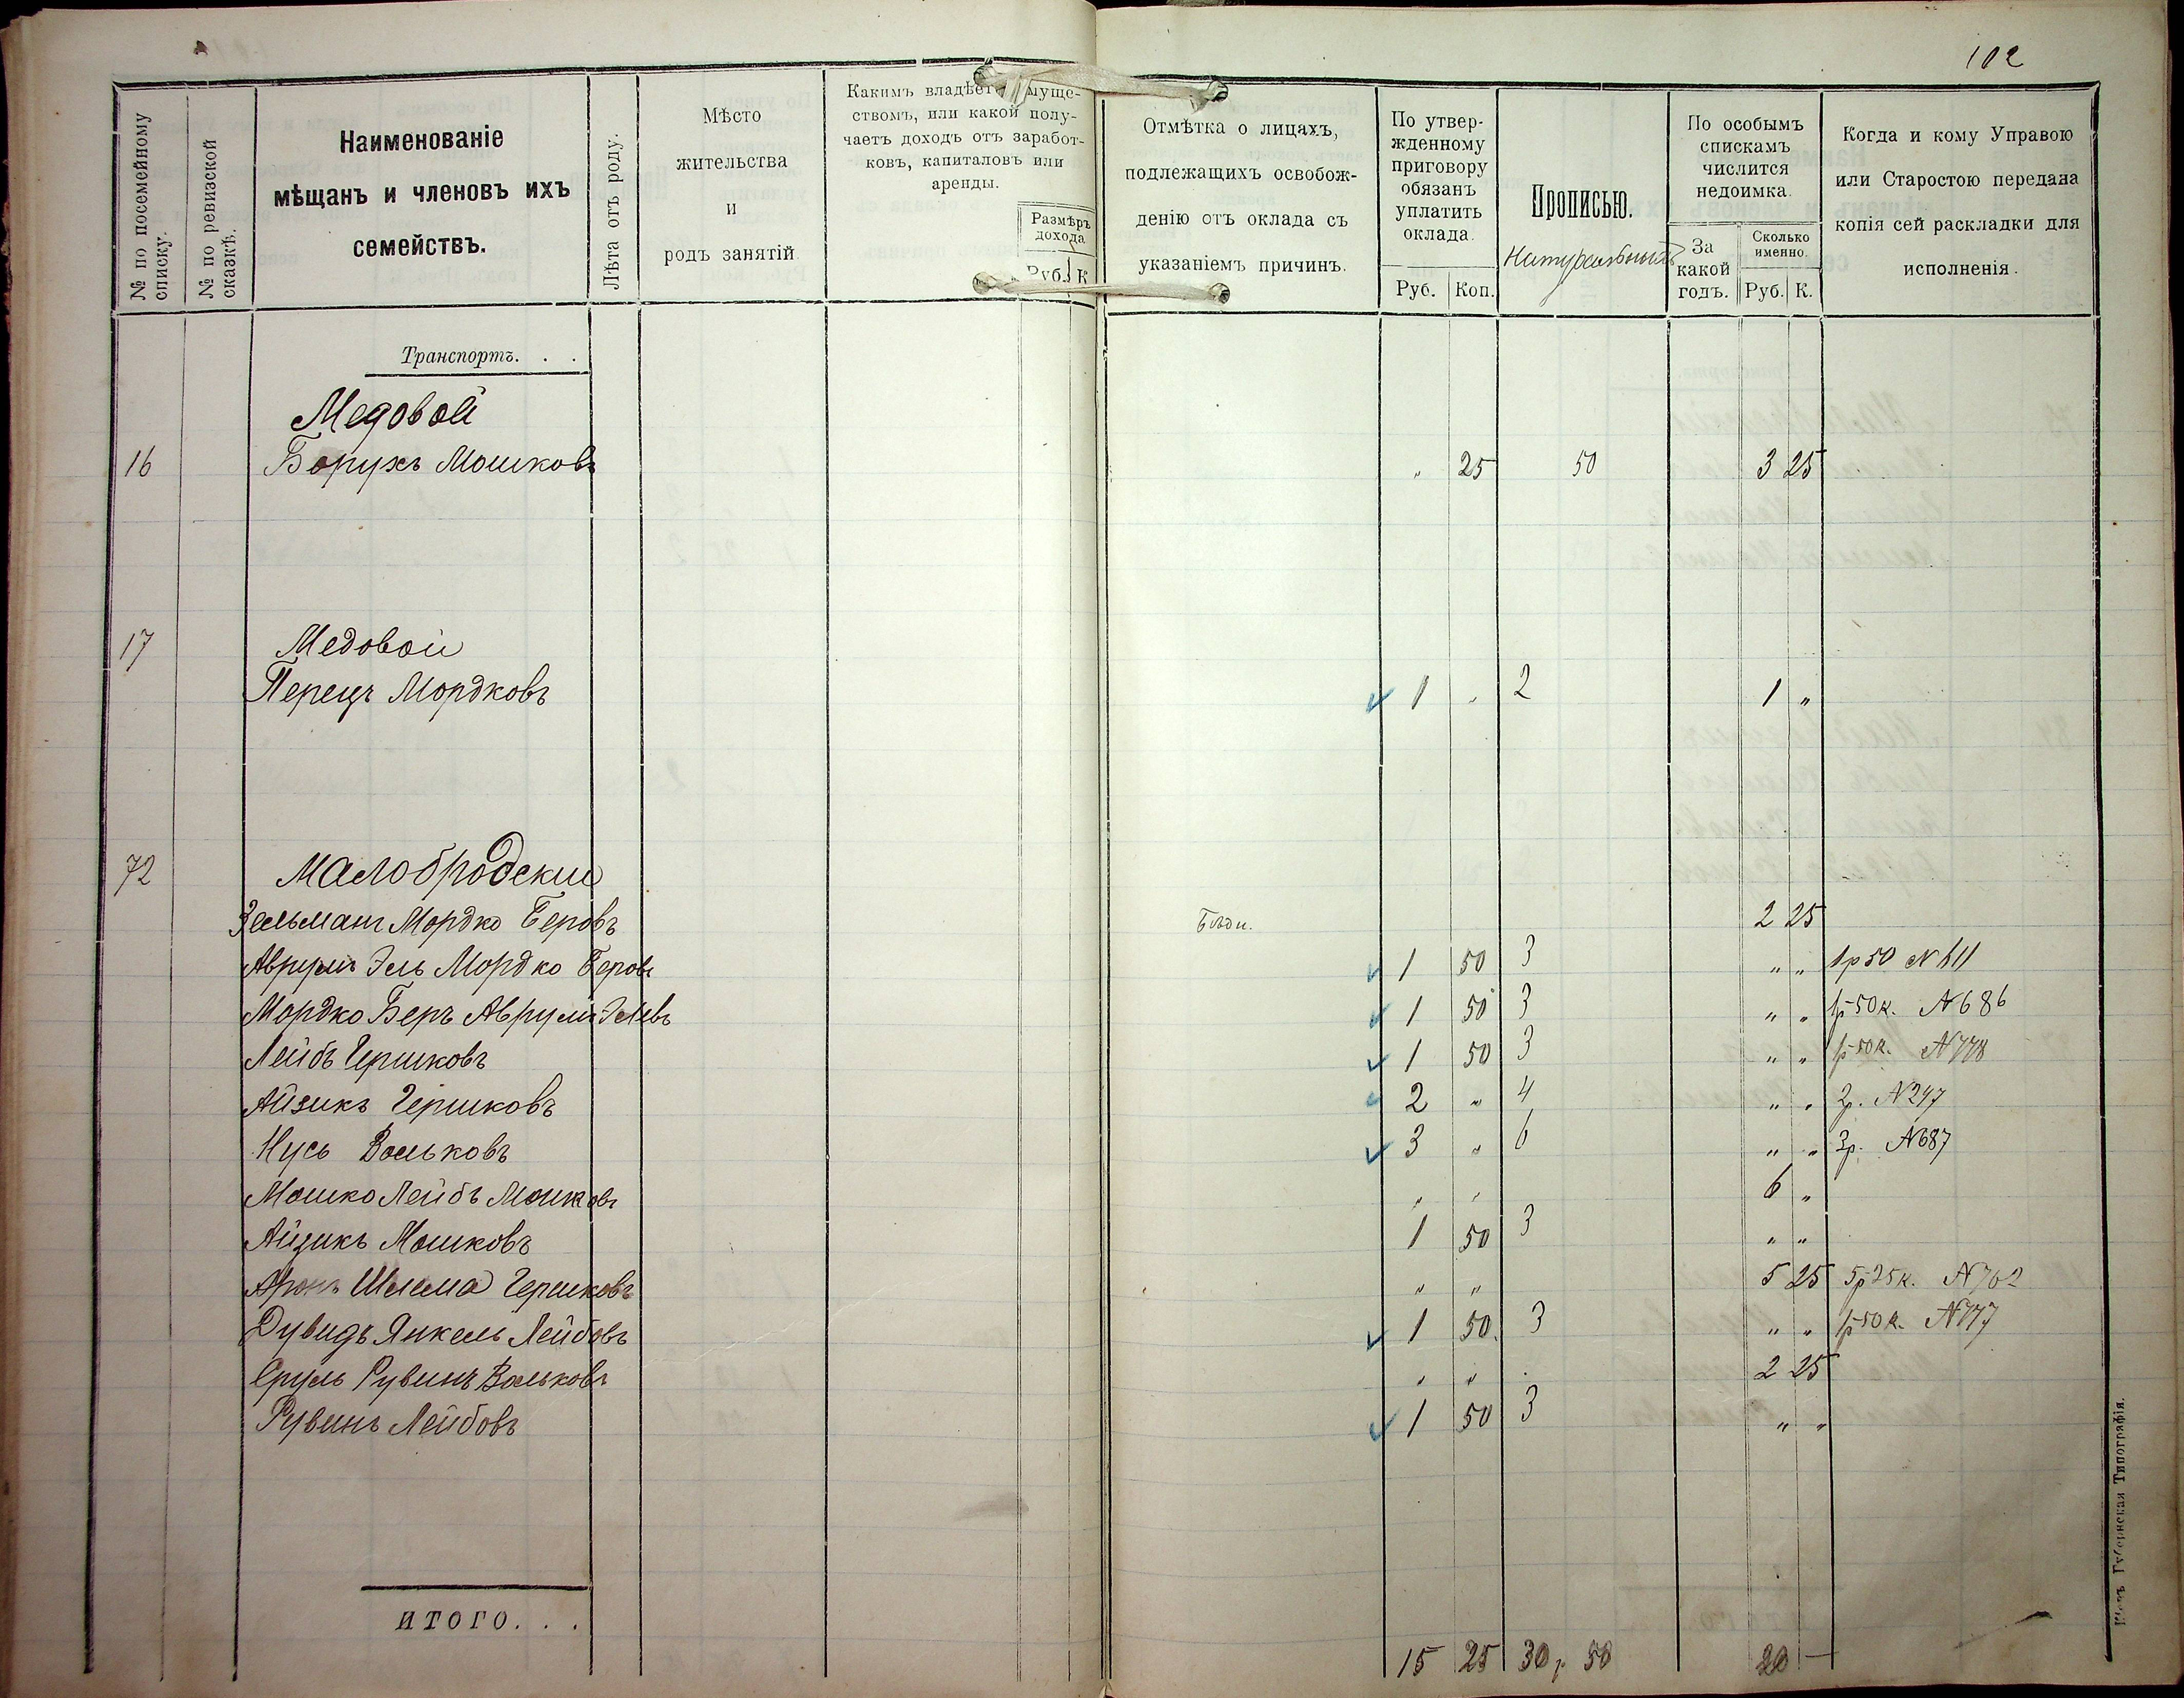 102
№ по посемейному списку.
№ по ревизской сказкѣ.
Наименованіе
мѣщанъ и членовъ ихъ
семействъ.
Лѣта отъ роду.
Мѣсто
жительства
и
родъ занятій
Какимъ владѣетъ
ствомъ, или какой полу-
чаетъ доходъ отъ заработ-
ковъ, капиталовъ или
аренды.
Размѣръ
дохода
Руб. К
Отмѣтка о лицахъ,
подлежащихъ освобож-
денію отъ оклада съ
указаніемъ причинъ.
По утвер-
жденному
приговору
обязанъ
уплатить
оклада.
Руб. Коп.
Прописью.
Натуральный
По особымъ
спискамъ
числится
недоимка.
За
какой
годъ.
Сколько
именно.
Руб. К.
Когда и кому Управою
или Старостою передана
копія сей раскладки для
исполненія.
Транспортъ. . .
Медовой
16 Борухъ Мошковъ " 25 50 3 25
17 Медовой
Перецъ Мордковъ 1 " 2 1 "
72 Малобродскии
Зельманъ Мордко Беровъ Бѣдн. 2 25
Аврумъ Эль Мордко Беровъ 1 50 3 " " 1р 50 N 611
Мордко Беръ Аврумъ Элевъ 1 50 3 " " 1р 50к. N 686
Лейбъ Гершковъ 1 50 3 " " 1р 50к. N 778
Айзикъ Гершковъ 2 " 4 " " 2р. N 247
Нусь Вольковъ 3 " 6 " " 3р. N 687
Мошко Лейбъ Мошковъ " " 6 "
Айзикъ Мошковъ 1 50 3 " "
Аронъ Шлема Гершковъ " " 5 25 5р 25к. N 762
Дувидъ Янкель Лейбовъ 1 50. 3 " " 1р 50к. N 777
Сруль Рувинъ Вольковъ " " 2 25
Рувинъ Лейбовъ 1 50 3 " "
ИТОГО. . .
15 25 30р 50 20 —
Губернская Типографія.